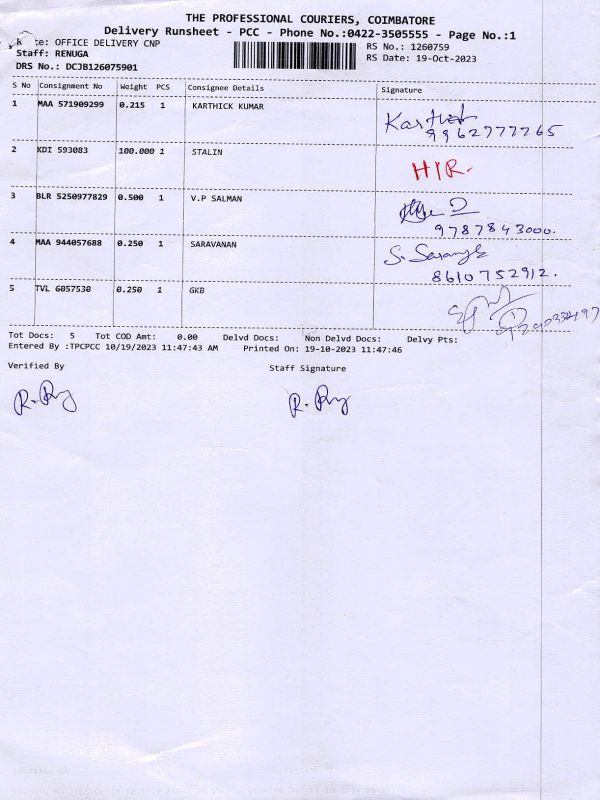 THE PROFESSIONAL COURIERS, COIMBATORE
Delivery Runsheet - PCC - Phone No.:0422-3505555 - Page No.:1
te: OFFICE DELIVERY CNP
RS No.: 1260759
Staff: RENUGA
RS Date: 19-Oct-2023
DRS No.: DCJB126075901
S No Consignment No Weight PCS Consignee Details Signature
1 MAA 571909299 0.215 1 KARTHICK KUMAR Karthik
9962777265
2 KDI 593083 100.000 1 STALIN H/R.
3 BLR 5250977829 0.500 1 V.P SALMAN
9787843000.
4 MAA 944057688 0.250 1 SARAVANAN
8610752912.
5 TVL 6057530 0.250 1 GKB
Tot Docs: 5 Tot COD Amt: 0.00 Delvd Docs: Non Delvd Docs: Delvy Pts:
Entered By :TPCPCC 10/19/2023 11:47:43 AM Printed On: 19-10-2023 11:47:46
Verified By Staff Signature